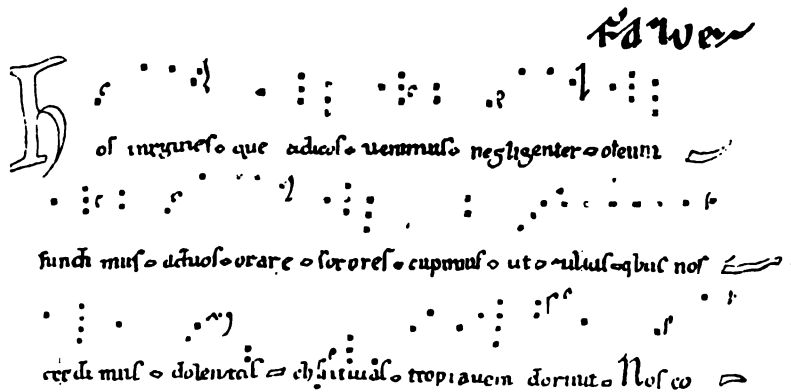 os uirgines que aduos uenimus negligenter oleum
fundi mus aduos orare sorores cupimus ut qbus nos
credi mus dolentas chaitiuas tropiauem dormit Nos co